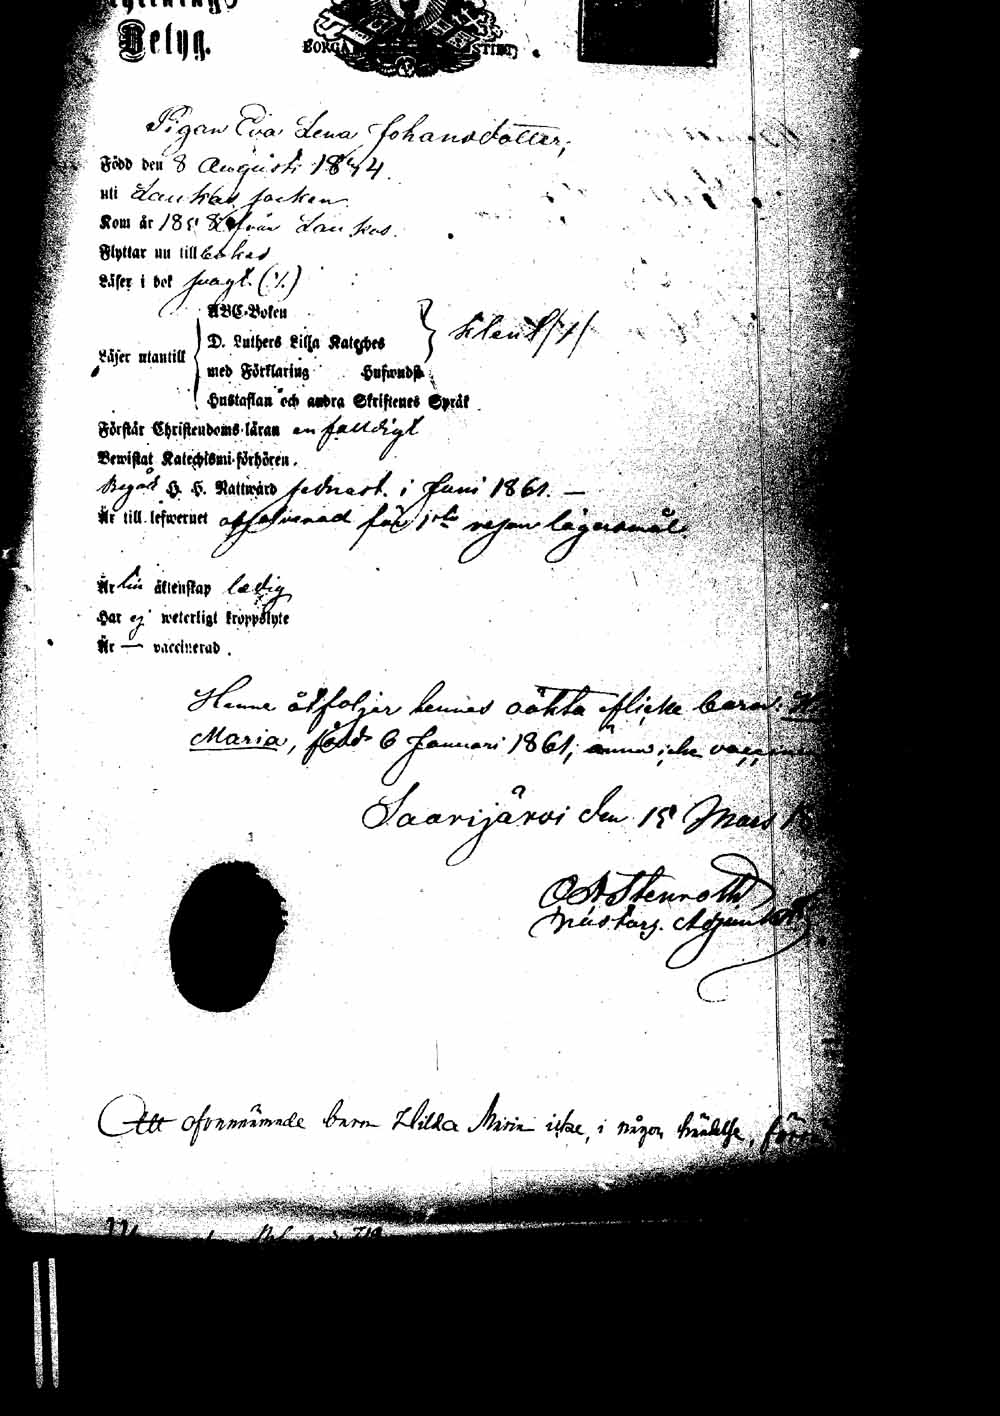 Betyg.
BORGÅ STIFT
Pigan Eva Lena Johansdotter,
Född den 8 Augusti 1844.
uti Laukas socken
Kom år 1858 från Laukas.
Flyttar nu till
Läser i bok svagt. (/.)
ABC-Boken
D. Luthers Lilla Kateches
Läser utantill
med Förklaring Hufwudst
Hustaflan och andra Skriftenes Språk
Förstår Christendoms-läran enfaldigt
Bewistat Katechismi-förhören.
Begått H. H. Nattward sednast. i Juni 1861. —
Är till lefwernet för 1sta resan lägersmål.
Är till äktenskap ledig
Har ej weterligt kroppslyte
Är — vaccinerad.
Henne åtföljer hennes oäkta flicke barn.
Maria, född 6 Januari 1861, ännu icke
Saarijärvi den 15 Mars
O A Stenroth
Att ofvannämnde barn Hilda Maria icke, i någon händelse,